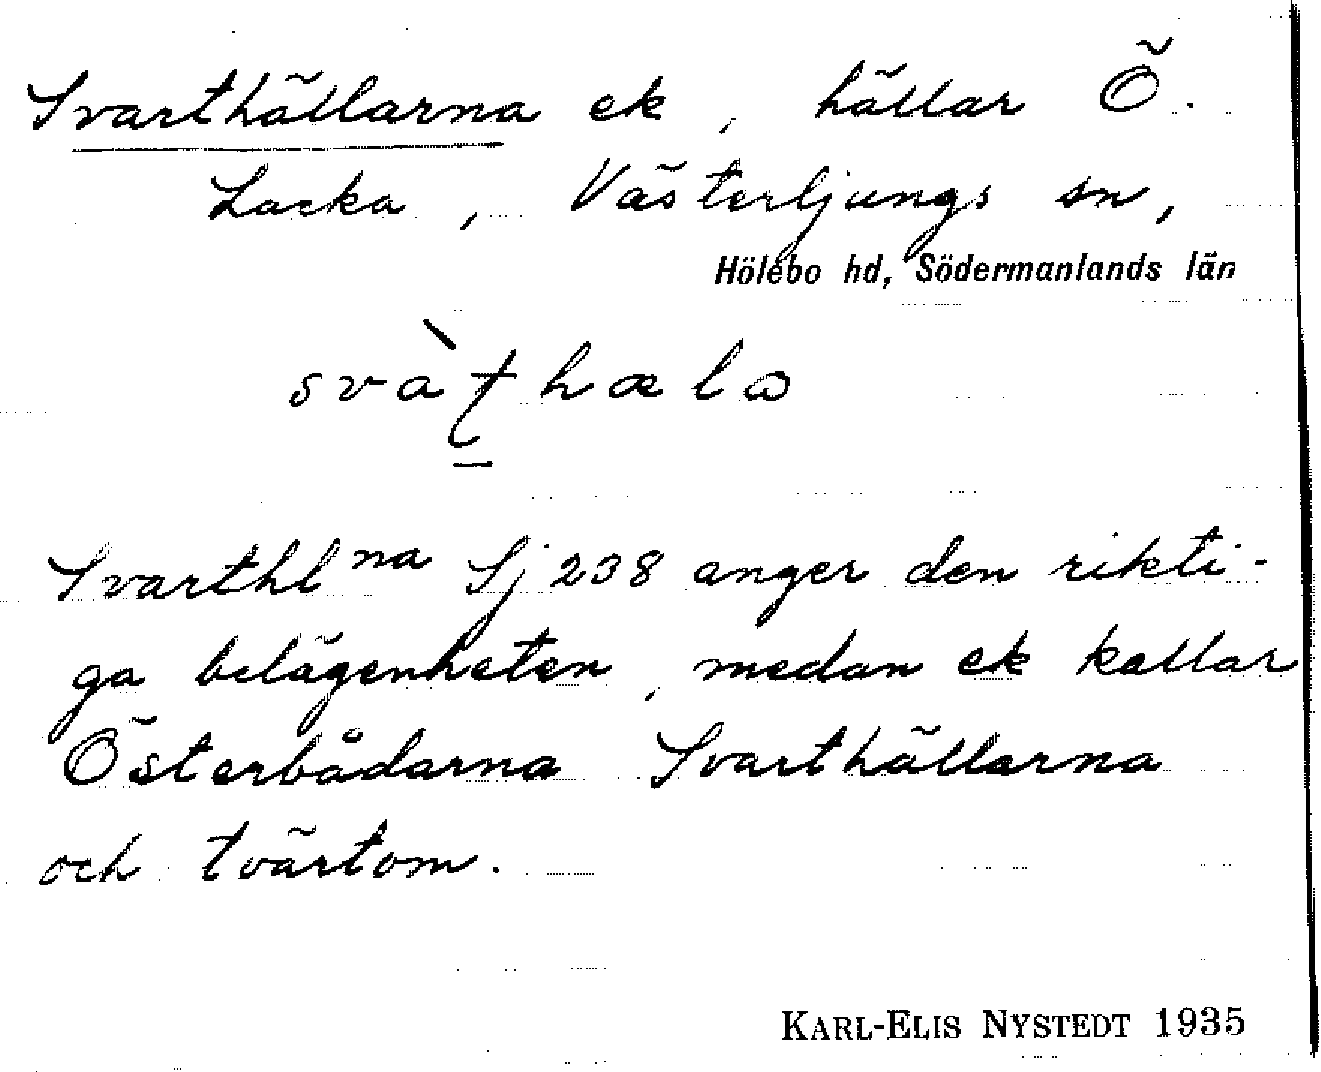 Svarthällarna ek, hällar Ö.
Lacka, Västerljungs sn,
Hölebo hd, Södermanlands län
svàt̠hælɷ
Svarthl na Sj 238 anger den rikti-
ga belägenheten, medan ek kallar
Österbådarna Svarthällarna
och tvärtom.
KARL-ELIS NYSTEDT 1935